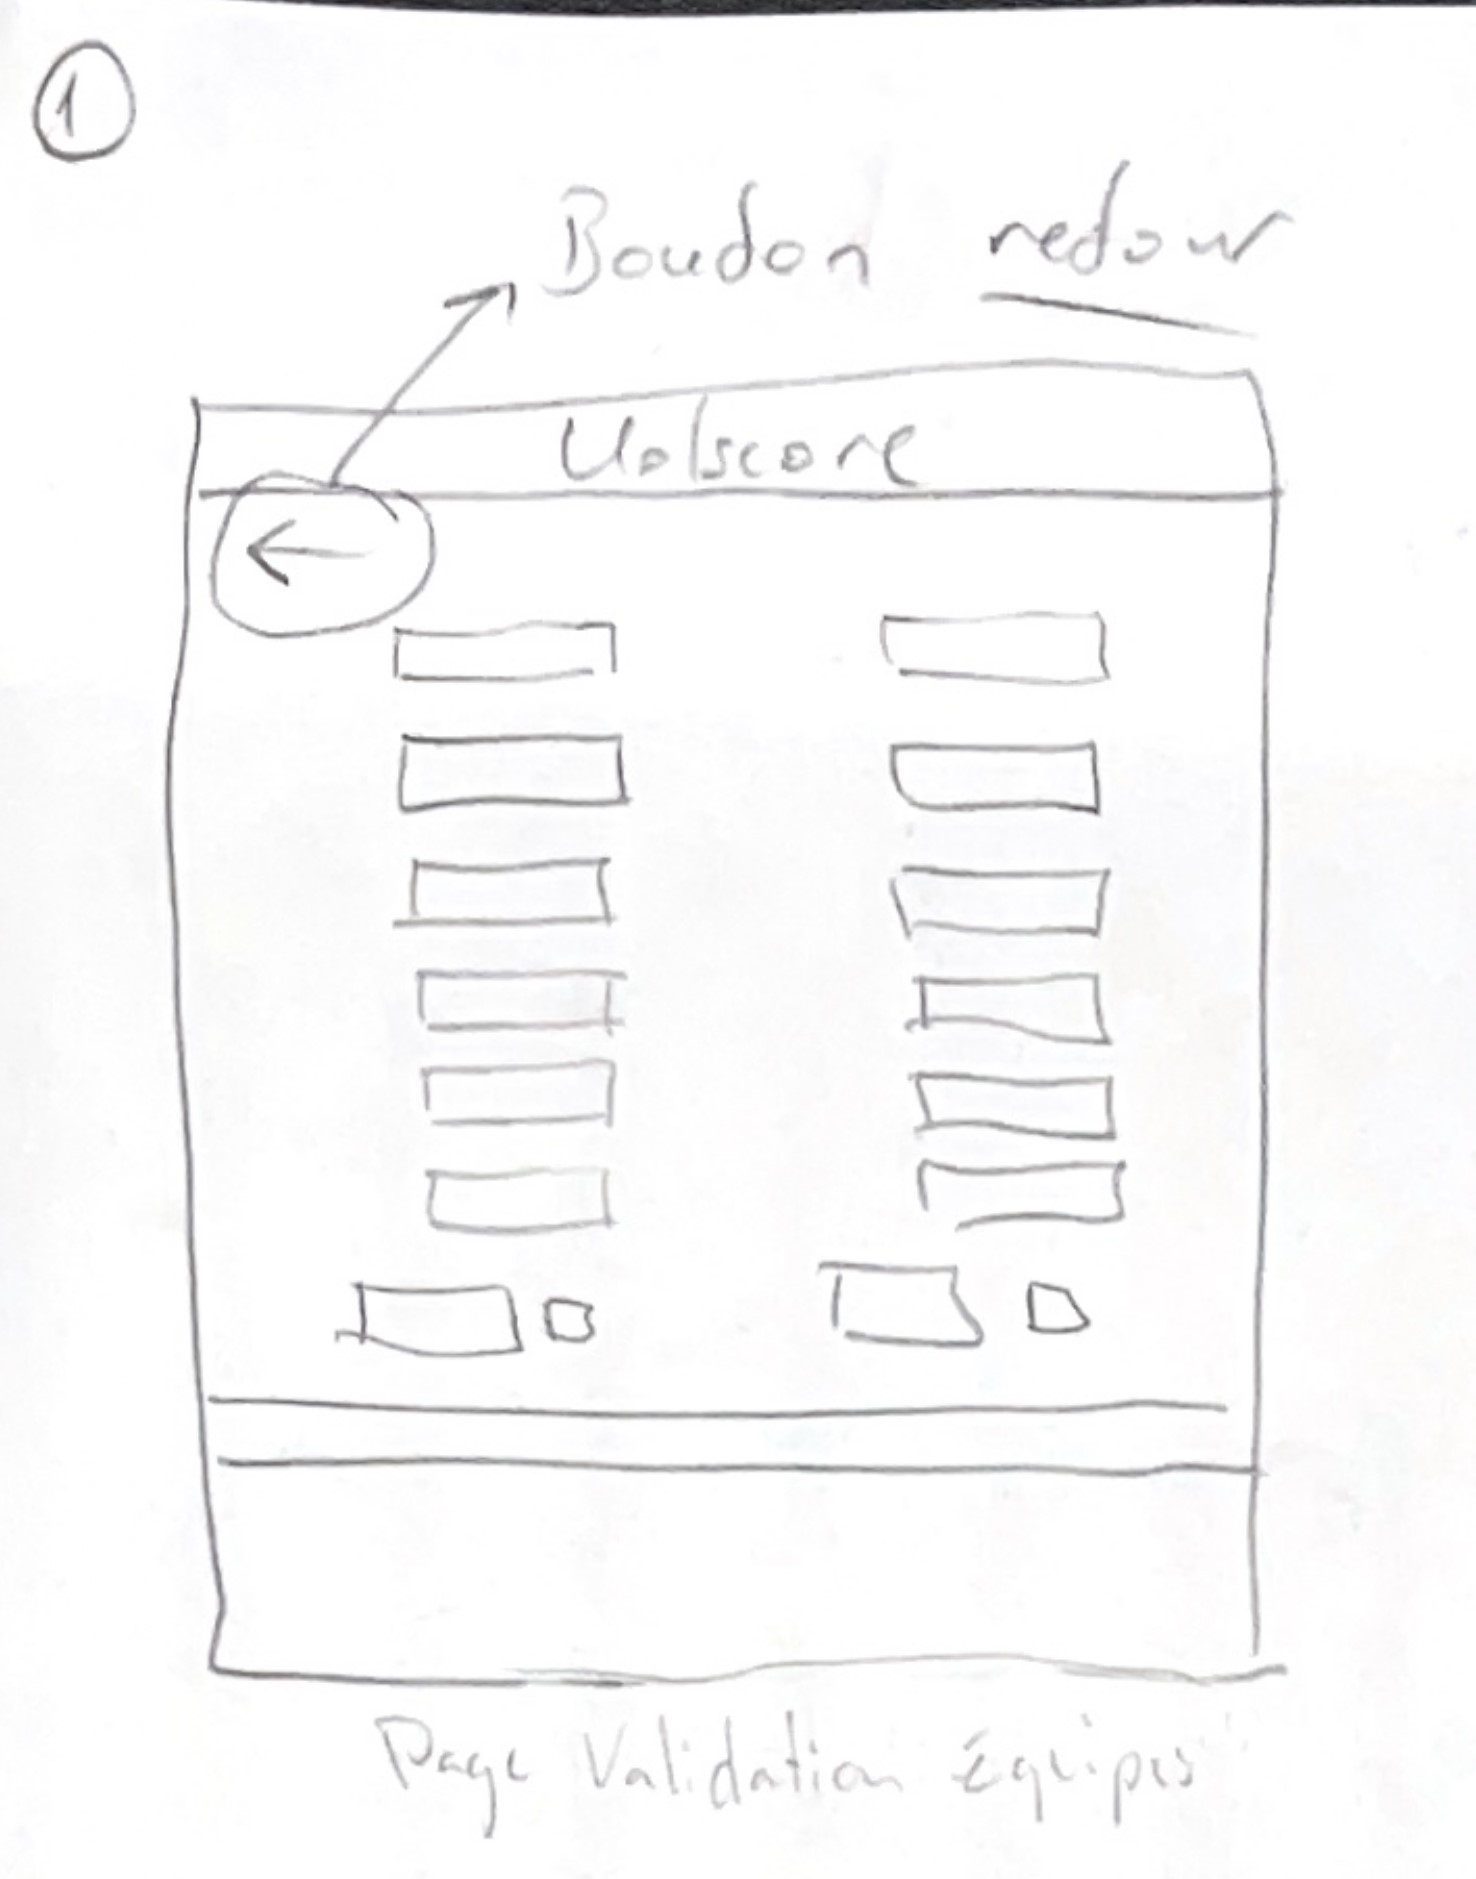 1
Bouton retour
Volscore
Page Validation Équipes